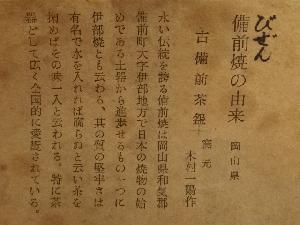 びぜん
備前焼の由来
岡山県
古備前茶鑑
窯元
木村一陽作
永い伝統を誇る備前焼は岡山県和気郡
備前町大字伊部地方で日本の焼物の始
めである土器から進歩せるもの一つに
伊部焼とも云わる、其の質の堅牢さは
有名で水を入れれば腐らぬと云い茶を
掬めばその味一入と云われる。特に茶
器として広く全国的に愛玩されている。